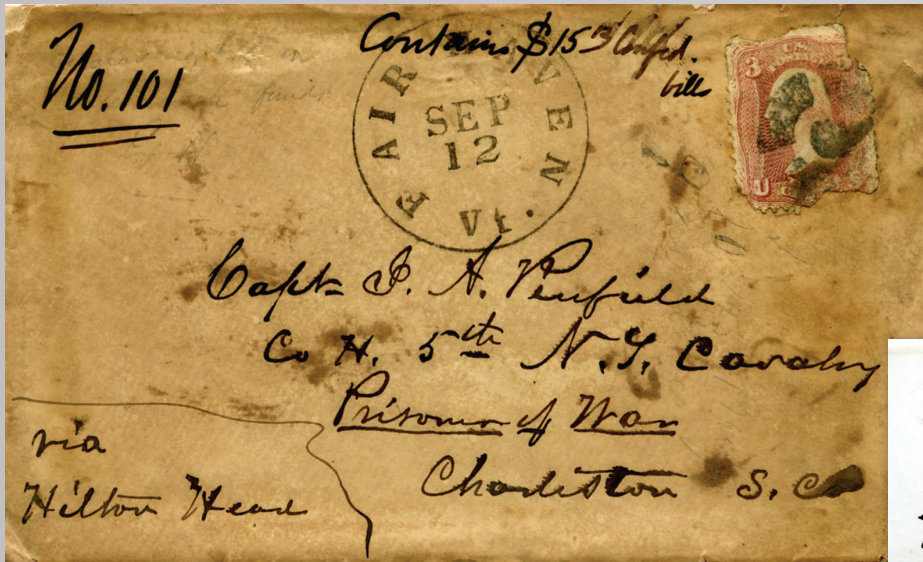 No. 101
Contains $15 Confed.
bills
FAIR HAVEN
SEP
12
Vt.
3
U
Capt. J. A. Penfield
Co H. 5th N.Y. Cavalry
Prisoner of War
Charleston S. Co
via
Hilton Head